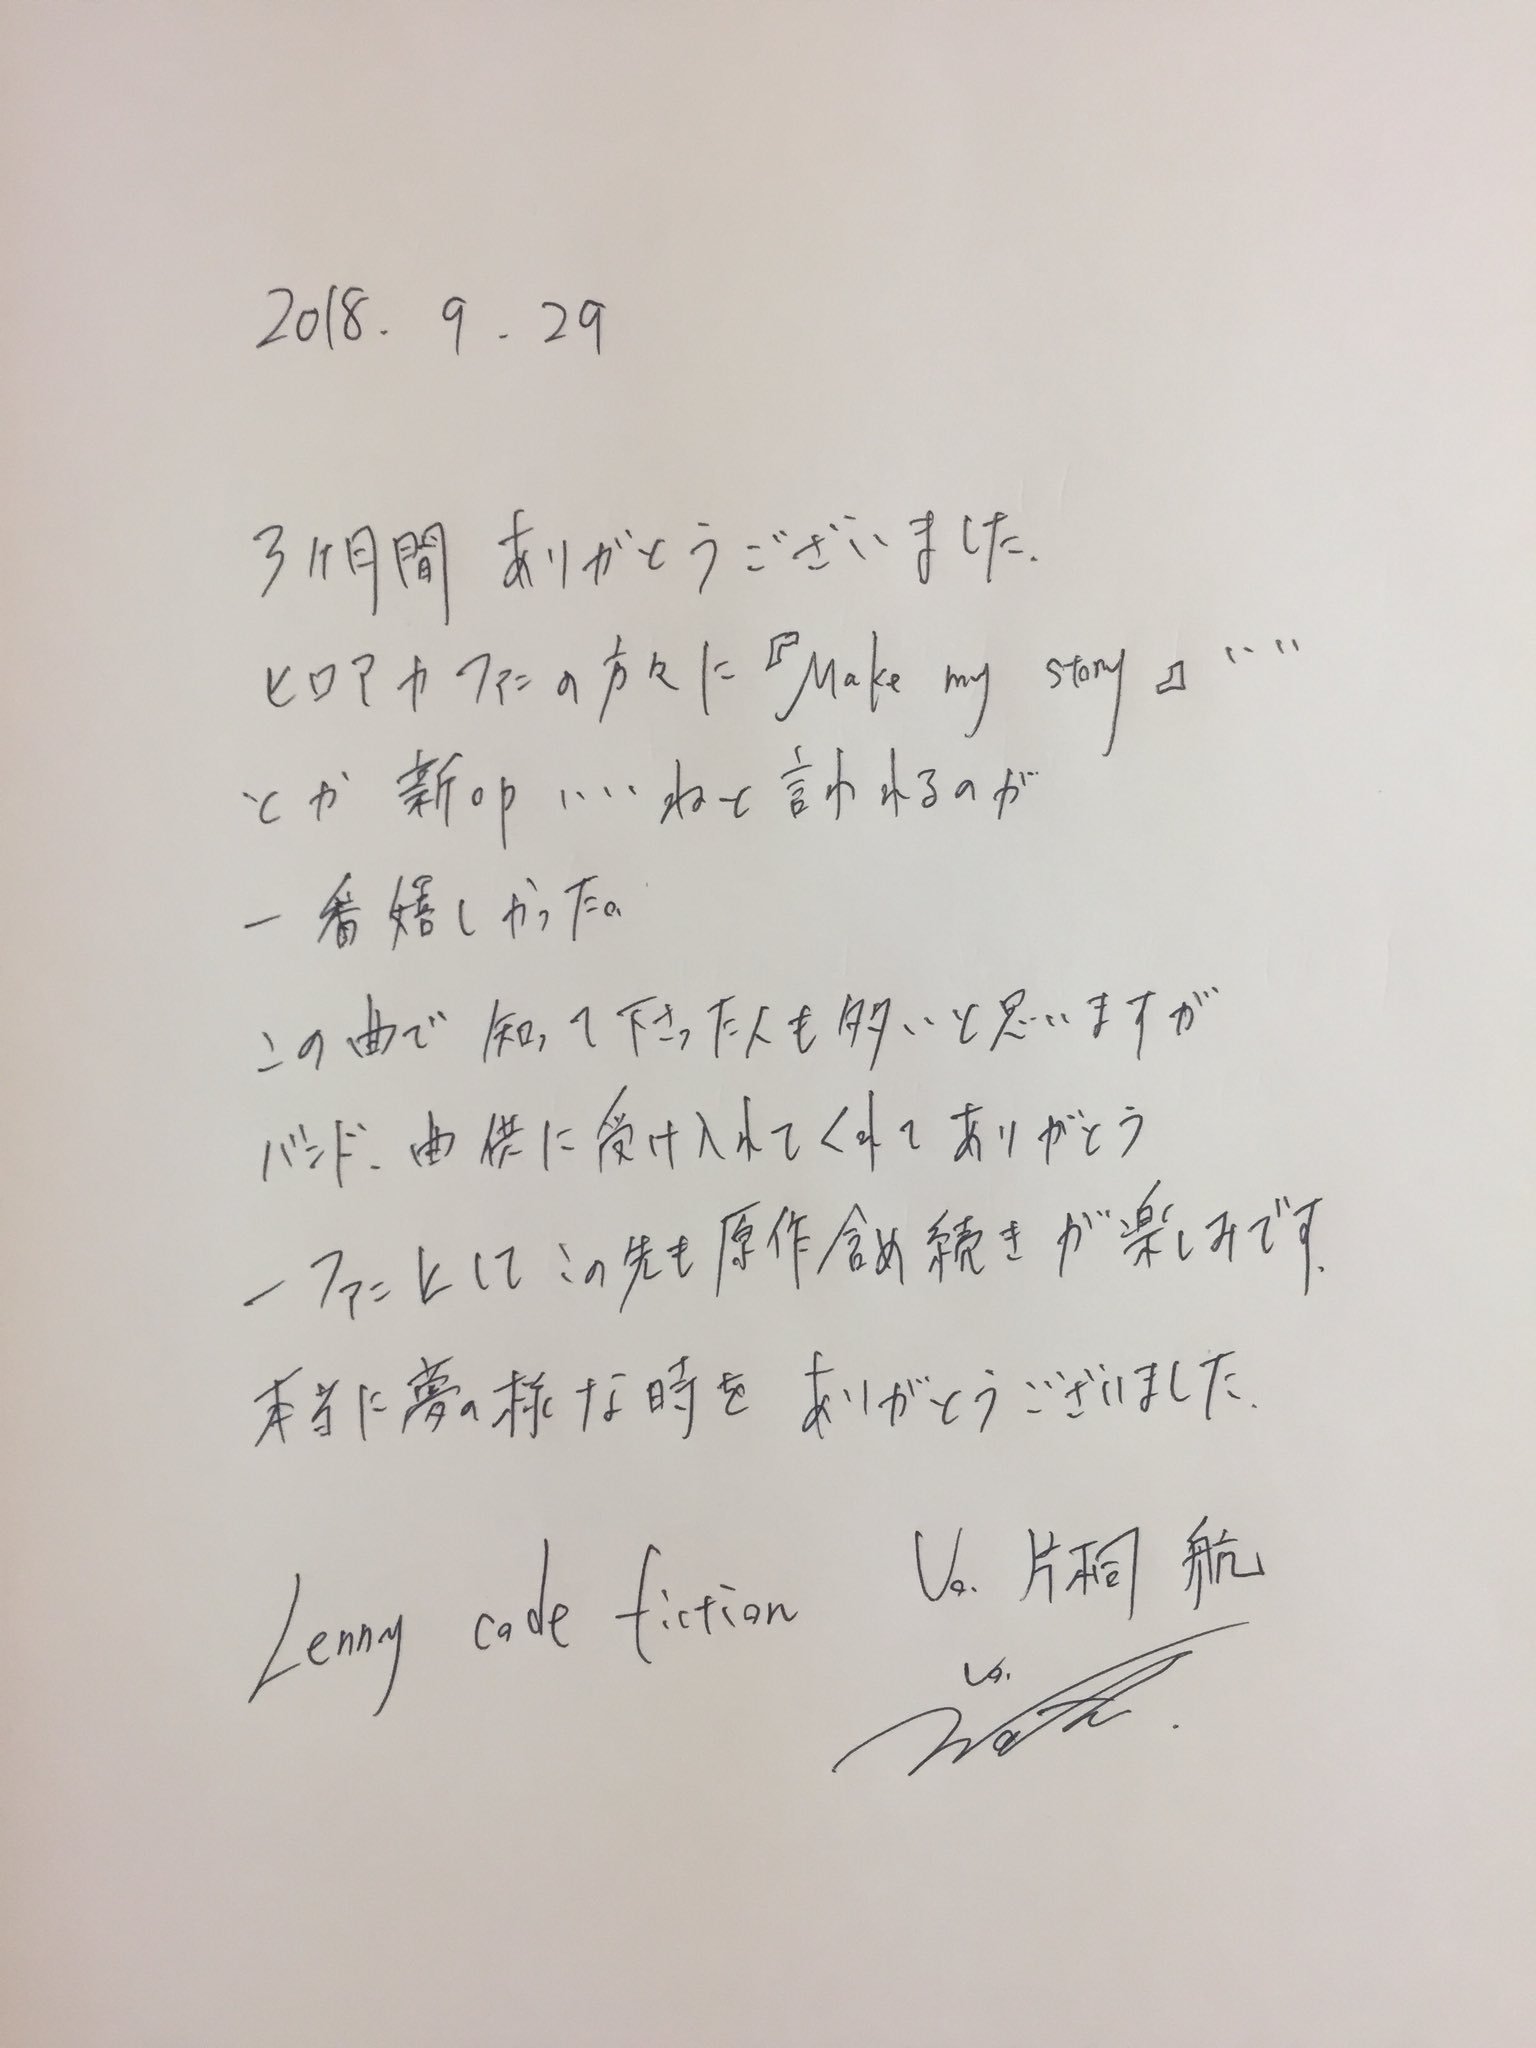 2018. 9. 29
3ヶ月間 ありがとうございました.
ヒロアカファンの方々に『Make my story』いい
とか 新op いいねと言われるのが
一番嬉しかった。
この曲で 知って下さった人も多いと思いますが
バンド、曲 供に受け入れてくれてありがとう
一ファンとしてこの先も原作含め続きが楽しみです.
本当に夢の様な時を ありがとうございました.
Lenny code fiction Vo. 片桐 航
Vo.